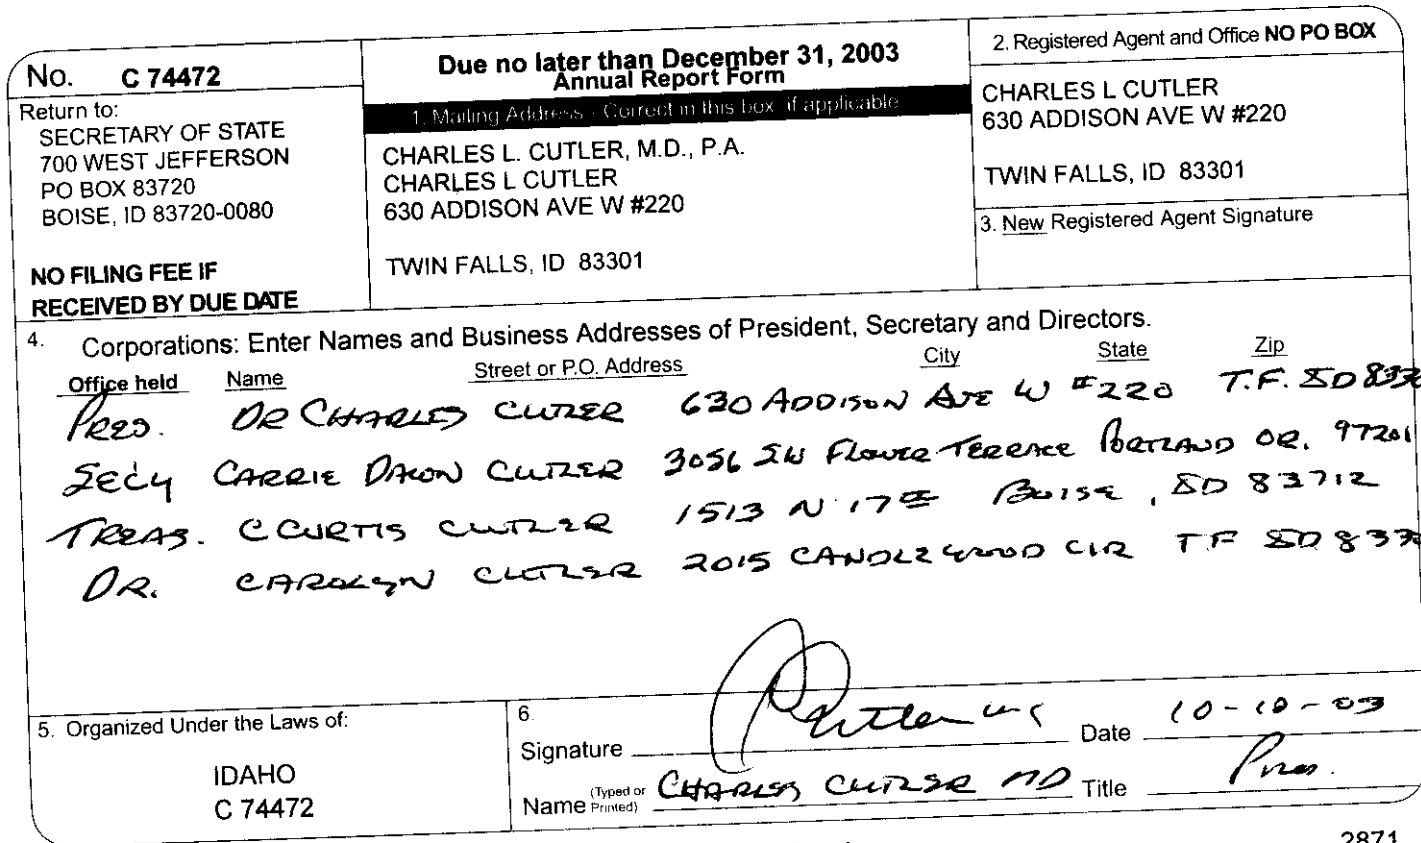 No. C 74472
Return to:
SECRETARY OF STATE
700 WEST JEFFERSON
PO BOX 83720
BOISE, ID 83720-0080
NO FILING FEE IF
RECEIVED BY DUE DATE
Due no later than December 31, 2003
Annual Report Form
1. Mailing Address - Correct in this box if applicable
CHARLES L. CUTLER, M.D., P.A.
CHARLES L CUTLER
630 ADDISON AVE W #220
TWIN FALLS, ID 83301
2. Registered Agent and Office NO PO BOX
CHARLES L CUTLER
630 ADDISON AVE W #220
TWIN FALLS, ID 83301
3. New Registered Agent Signature
4. Corporations: Enter Names and Business Addresses of President, Secretary and Directors.
Office held Name Street or P.O. Address City State Zip
PRES. DR CHARLES CUTLER 630 ADDISON AVE W #220 T.F. ID 8330
SEC'Y CARRIE DAWN CUTLER 3056 SW FLOWER TERRACE PORTLAND OR. 97201
TREAS. C CURTIS CUTLER 1513 N 17th BOISE, ID 83712
DR. CAROLYN CUTLER 2015 CANDLEWOOD CIR TF ID 8330
5. Organized Under the Laws of:
IDAHO
C 74472
6.
Signature Cutler Date 10-10-03
Name (Typed or Printed) CHARLES CUTLER MD Title Pres.
2871